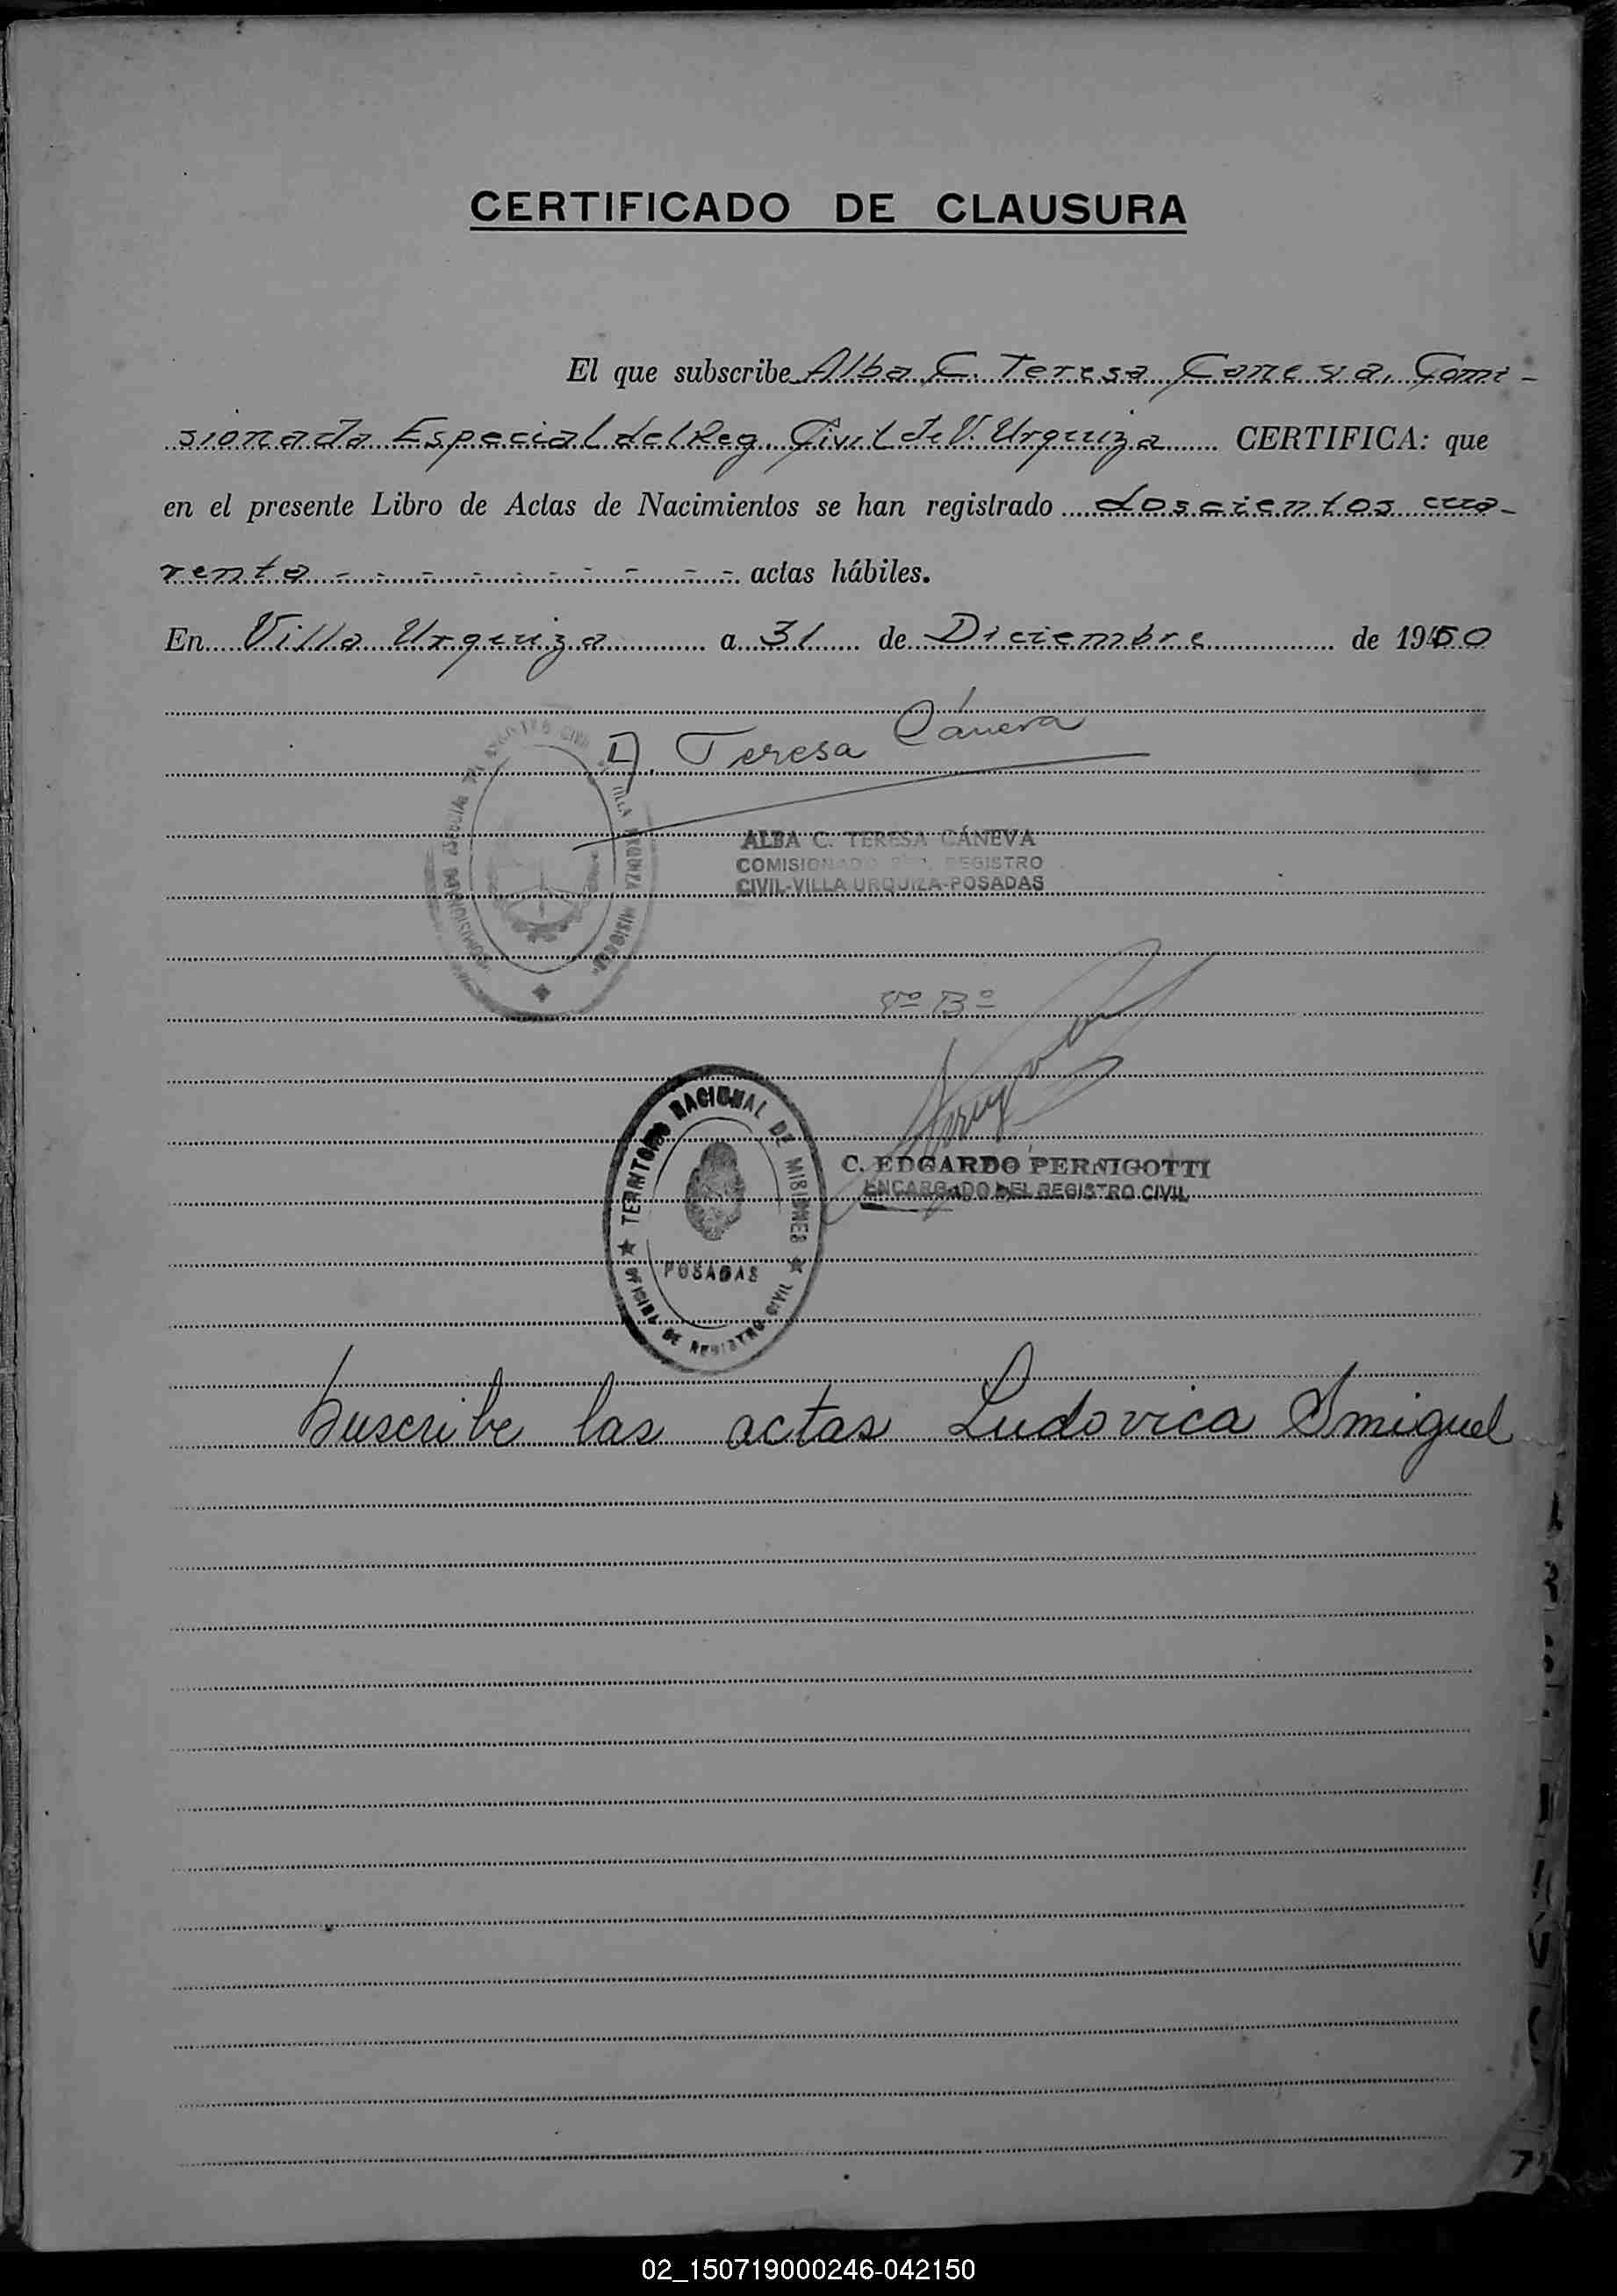 CERTIFICADO DE CLAUSURA
El que subscribe Alba C. Teresa Caneva, Comi-
sionada Especial del Reg. Civil de V. Urquiza CERTIFICA: que
en el presente Libro de Actas de Nacimientos se han registrado doscientos cua-
renta - - - - - - - - - actas hábiles.
En Villa Urquiza a 31 de Diciembre de 1950
A. Teresa Cáneva
ALBA C. TERESA CÁNEVA
COMISIONADO ESP. REGISTRO
CIVIL-VILLA URQUIZA-POSADAS
Vº Bº
TERRITORIO NACIONAL DE MISIONES
POSADAS
OFICINA DE REGISTRO CIVIL
C. EDGARDO PERNIGOTTI
ENCARGADO DEL REGISTRO CIVIL
Suscribe las actas Ludovica Smiguel
02_150719000246-042150